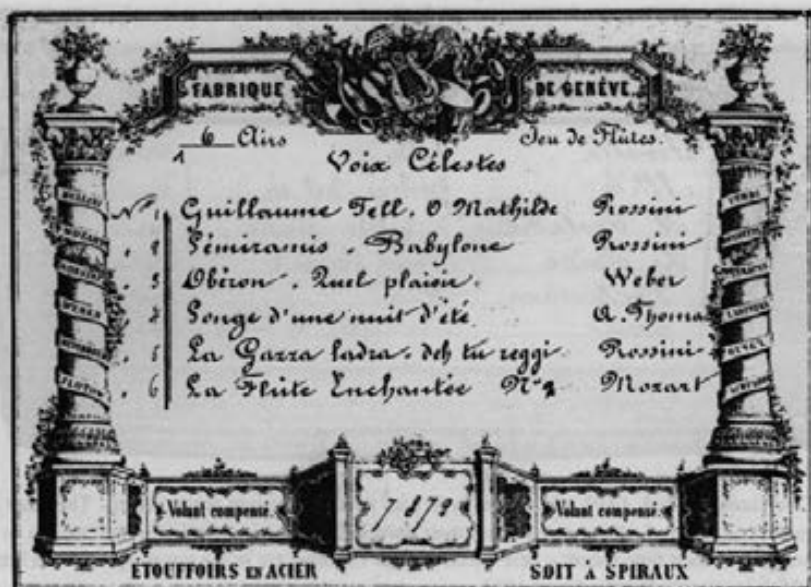 FABRIQUE DE GENÈVE
6 Airs Jeu de Flûtes.
Voix Célestes
Nº 1 Guillaume Tell. O Mathilde Rossini
" 2 Sémiramis. Babylone Rossini
" 3 Obéron. Quel plaisir. Weber
" 4 Songe d'une nuit d'été A. Thomas
" 5 La Gazza ladra. deh tu reggi Rossini
" 6 La Flûte Enchantée Nº 2 Mozart
BELLINI
MOZART
WEBER
FLOTOW
VERDI
Volant compensé. 7872 Volant compensé.
ÉTOUFFOIRS EN ACIER SOIT À SPIRAUX